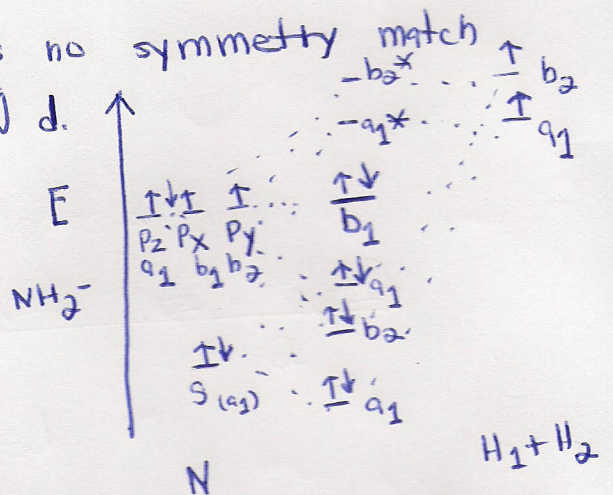 no symmetry match
d.
-b₂*
↑ b₂
-a₁*
↑ a₁
E
↑↓ ↑ ↑
↑↓
Pz Px Py
b₁
a₁ b₁ b₂
NH₂⁻
↑↓ a₁
↑↓ b₂
↑↓
S (a₁)
↑↓ a₁
N
H₁ + H₂